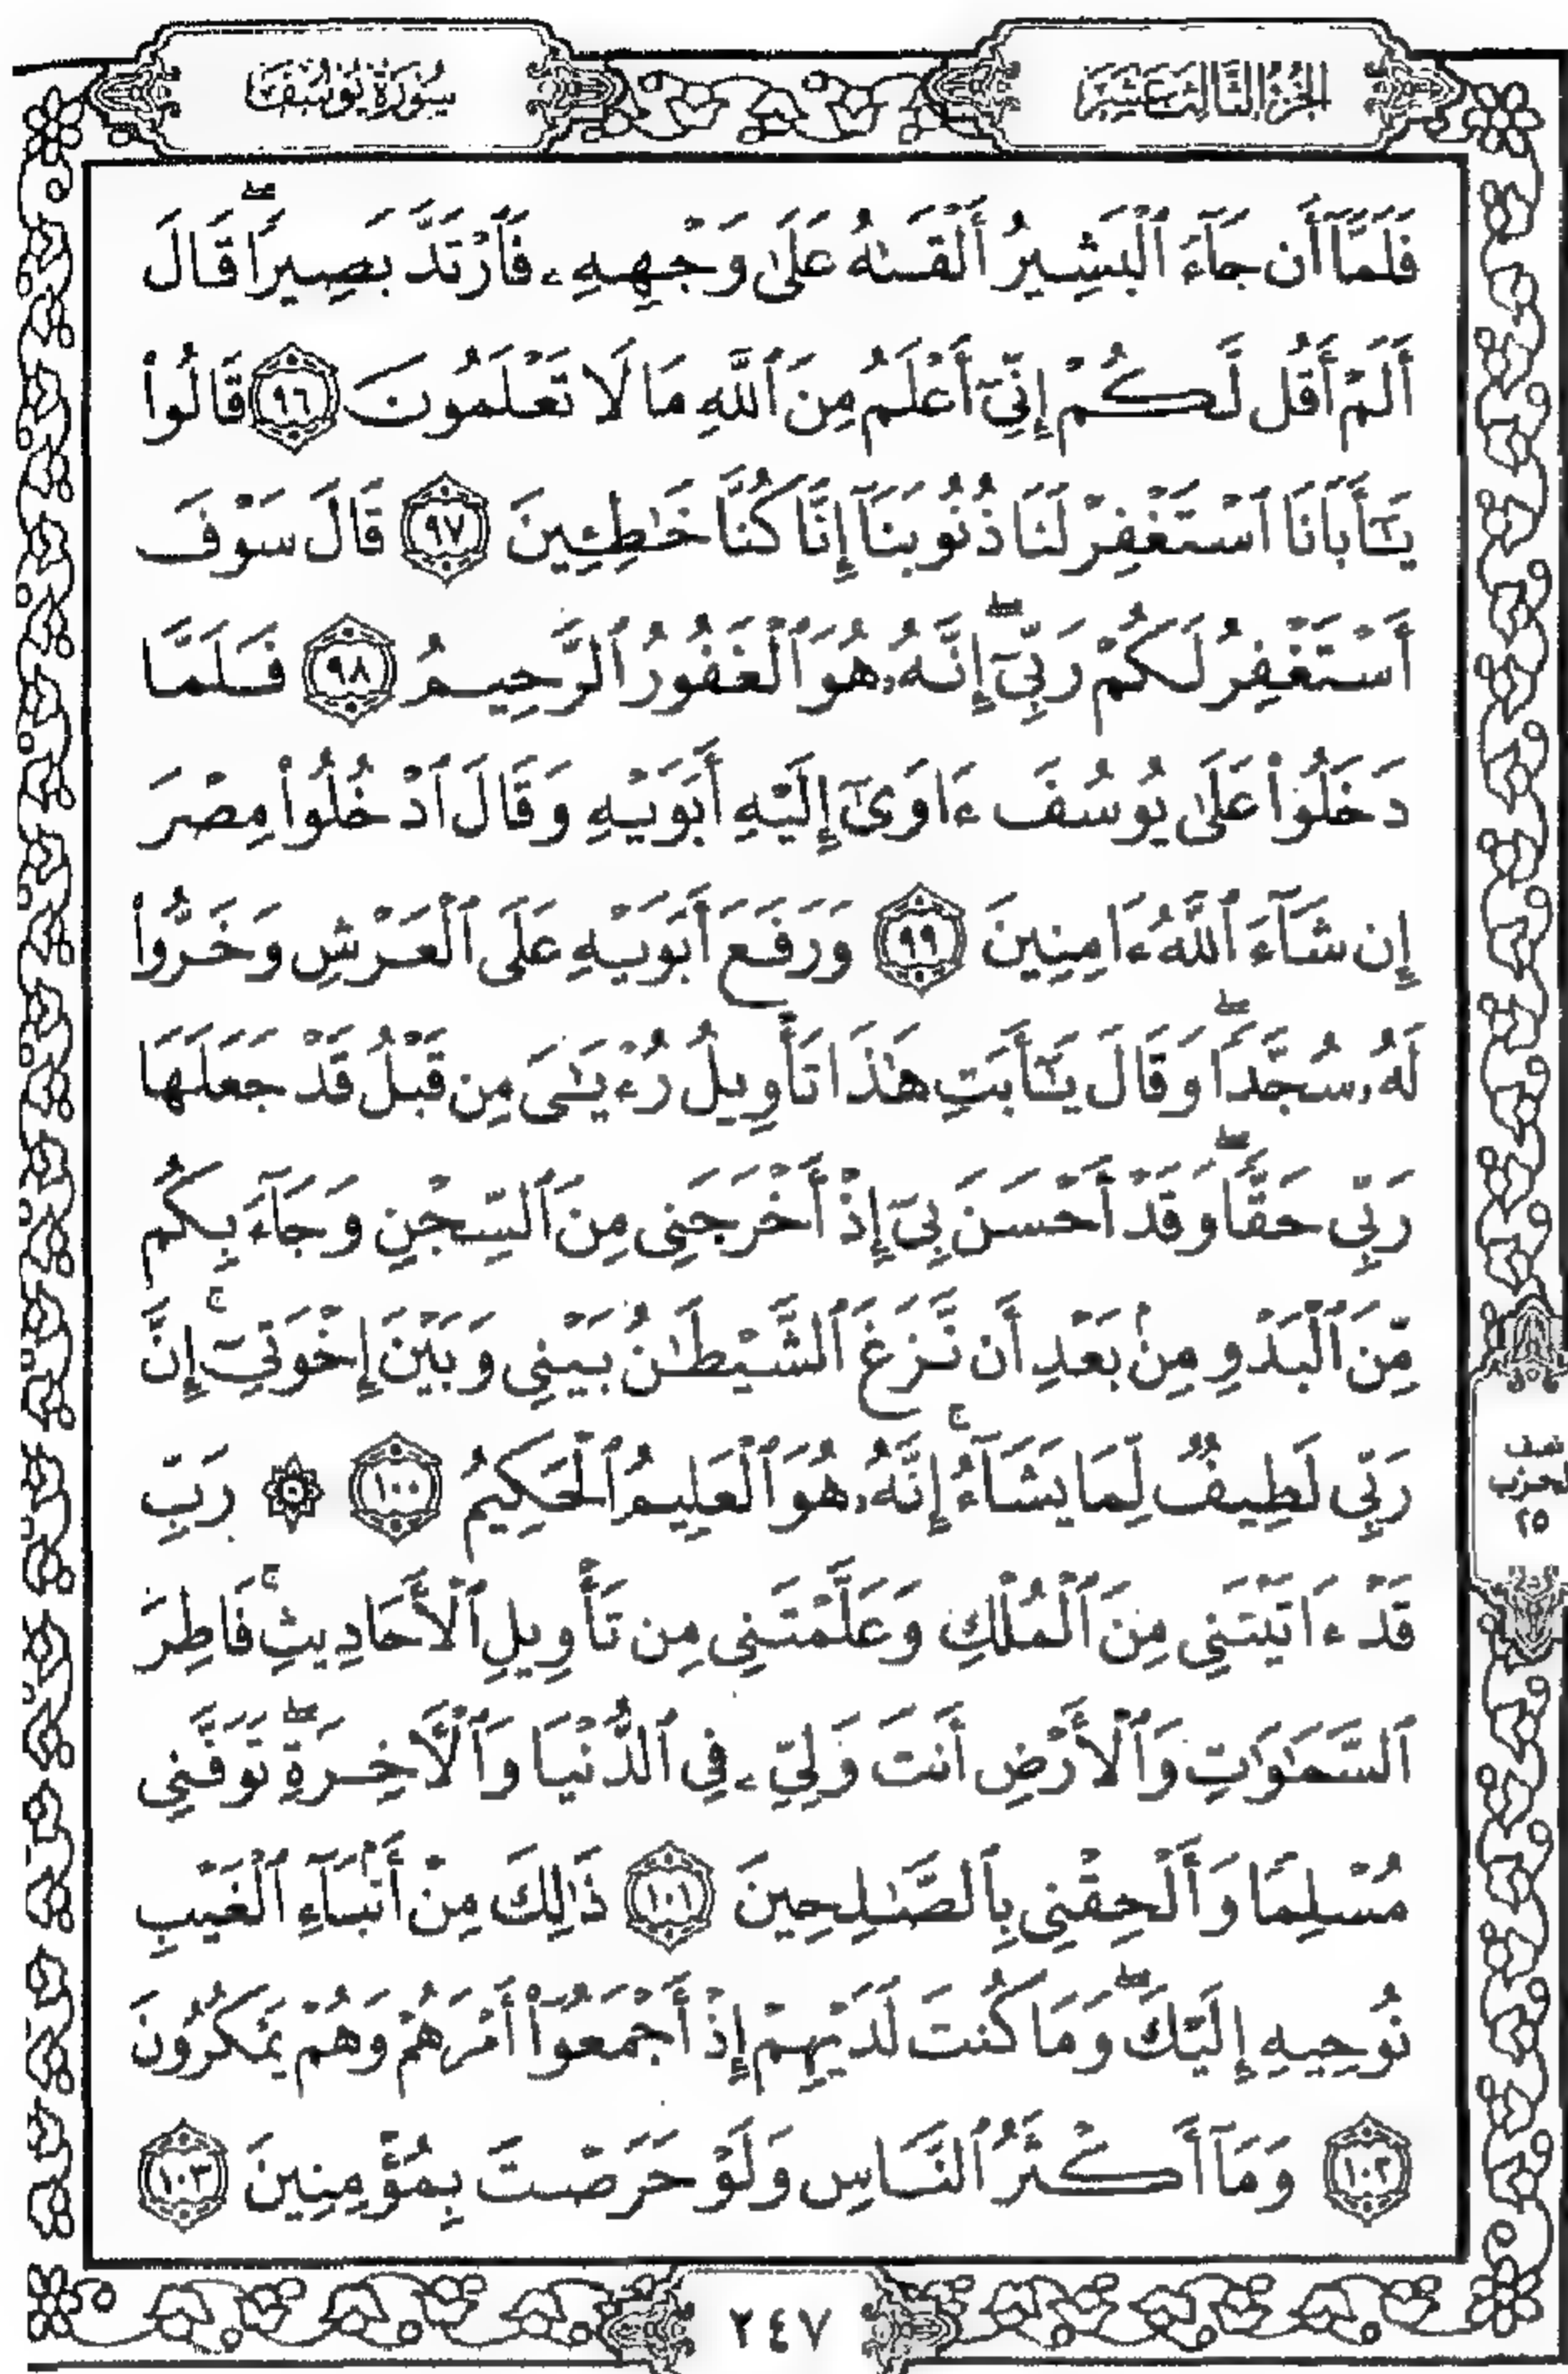 الجزء الثالث عشر
سورة يوسف
فَلَمَّآ أَن جَآءَ ٱلْبَشِيرُ أَلْقَىٰهُ عَلَىٰ وَجْهِهِۦ فَٱرْتَدَّ بَصِيرًاۖ قَالَ
أَلَمْ أَقُل لَّكُمْ إِنِّىٓ أَعْلَمُ مِنَ ٱللَّهِ مَا لَا تَعْلَمُونَ ٩٦ قَالُوا۟
يَـٰٓأَبَانَا ٱسْتَغْفِرْ لَنَا ذُنُوبَنَآ إِنَّا كُنَّا خَـٰطِـِٔينَ ٩٧ قَالَ سَوْفَ
أَسْتَغْفِرُ لَكُمْ رَبِّىٓۖ إِنَّهُۥ هُوَ ٱلْغَفُورُ ٱلرَّحِيمُ ٩٨ فَلَمَّا
دَخَلُوا۟ عَلَىٰ يُوسُفَ ءَاوَىٰٓ إِلَيْهِ أَبَوَيْهِ وَقَالَ ٱدْخُلُوا۟ مِصْرَ
إِن شَآءَ ٱللَّهُ ءَامِنِينَ ٩٩ وَرَفَعَ أَبَوَيْهِ عَلَى ٱلْعَرْشِ وَخَرُّوا۟
لَهُۥ سُجَّدًاۖ وَقَالَ يَـٰٓأَبَتِ هَـٰذَا تَأْوِيلُ رُءْيَـٰىَ مِن قَبْلُ قَدْ جَعَلَهَا
رَبِّى حَقًّاۖ وَقَدْ أَحْسَنَ بِىٓ إِذْ أَخْرَجَنِى مِنَ ٱلسِّجْنِ وَجَآءَ بِكُم
مِّنَ ٱلْبَدْوِ مِنۢ بَعْدِ أَن نَّزَغَ ٱلشَّيْطَـٰنُ بَيْنِى وَبَيْنَ إِخْوَتِىٓۚ إِنَّ
رَبِّى لَطِيفٌ لِّمَا يَشَآءُۚ إِنَّهُۥ هُوَ ٱلْعَلِيمُ ٱلْحَكِيمُ ١٠٠ ۞ رَبِّ
قَدْ ءَاتَيْتَنِى مِنَ ٱلْمُلْكِ وَعَلَّمْتَنِى مِن تَأْوِيلِ ٱلْأَحَادِيثِۚ فَاطِرَ
ٱلسَّمَـٰوَٰتِ وَٱلْأَرْضِ أَنتَ وَلِىِّۦ فِى ٱلدُّنْيَا وَٱلْـَٔاخِرَةِۖ تَوَفَّنِى
مُسْلِمًا وَأَلْحِقْنِى بِٱلصَّـٰلِحِينَ ١٠١ ذَٰلِكَ مِنْ أَنۢبَآءِ ٱلْغَيْبِ
نُوحِيهِ إِلَيْكَۖ وَمَا كُنتَ لَدَيْهِمْ إِذْ أَجْمَعُوٓا۟ أَمْرَهُمْ وَهُمْ يَمْكُرُونَ
١٠٢ وَمَآ أَكْثَرُ ٱلنَّاسِ وَلَوْ حَرَصْتَ بِمُؤْمِنِينَ ١٠٣
نصف
الحزب
٢٥
٢٤٧